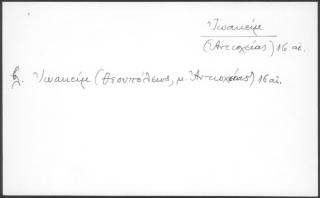 Ἰωακείμ
(Ἀντιοχείας) 16 αἰ.
βλ. Ἰωακείμ (Θεουπόλεως, μ. Ἀντιοχείας) 16 αἰ.